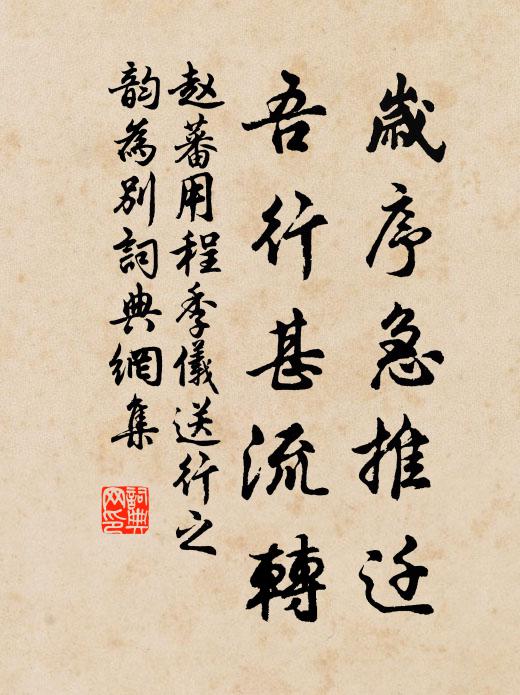 歲序急推迁
吾行甚流轉
赵蕃用程季儀送行之
韵為别詞典網集
詞典网印